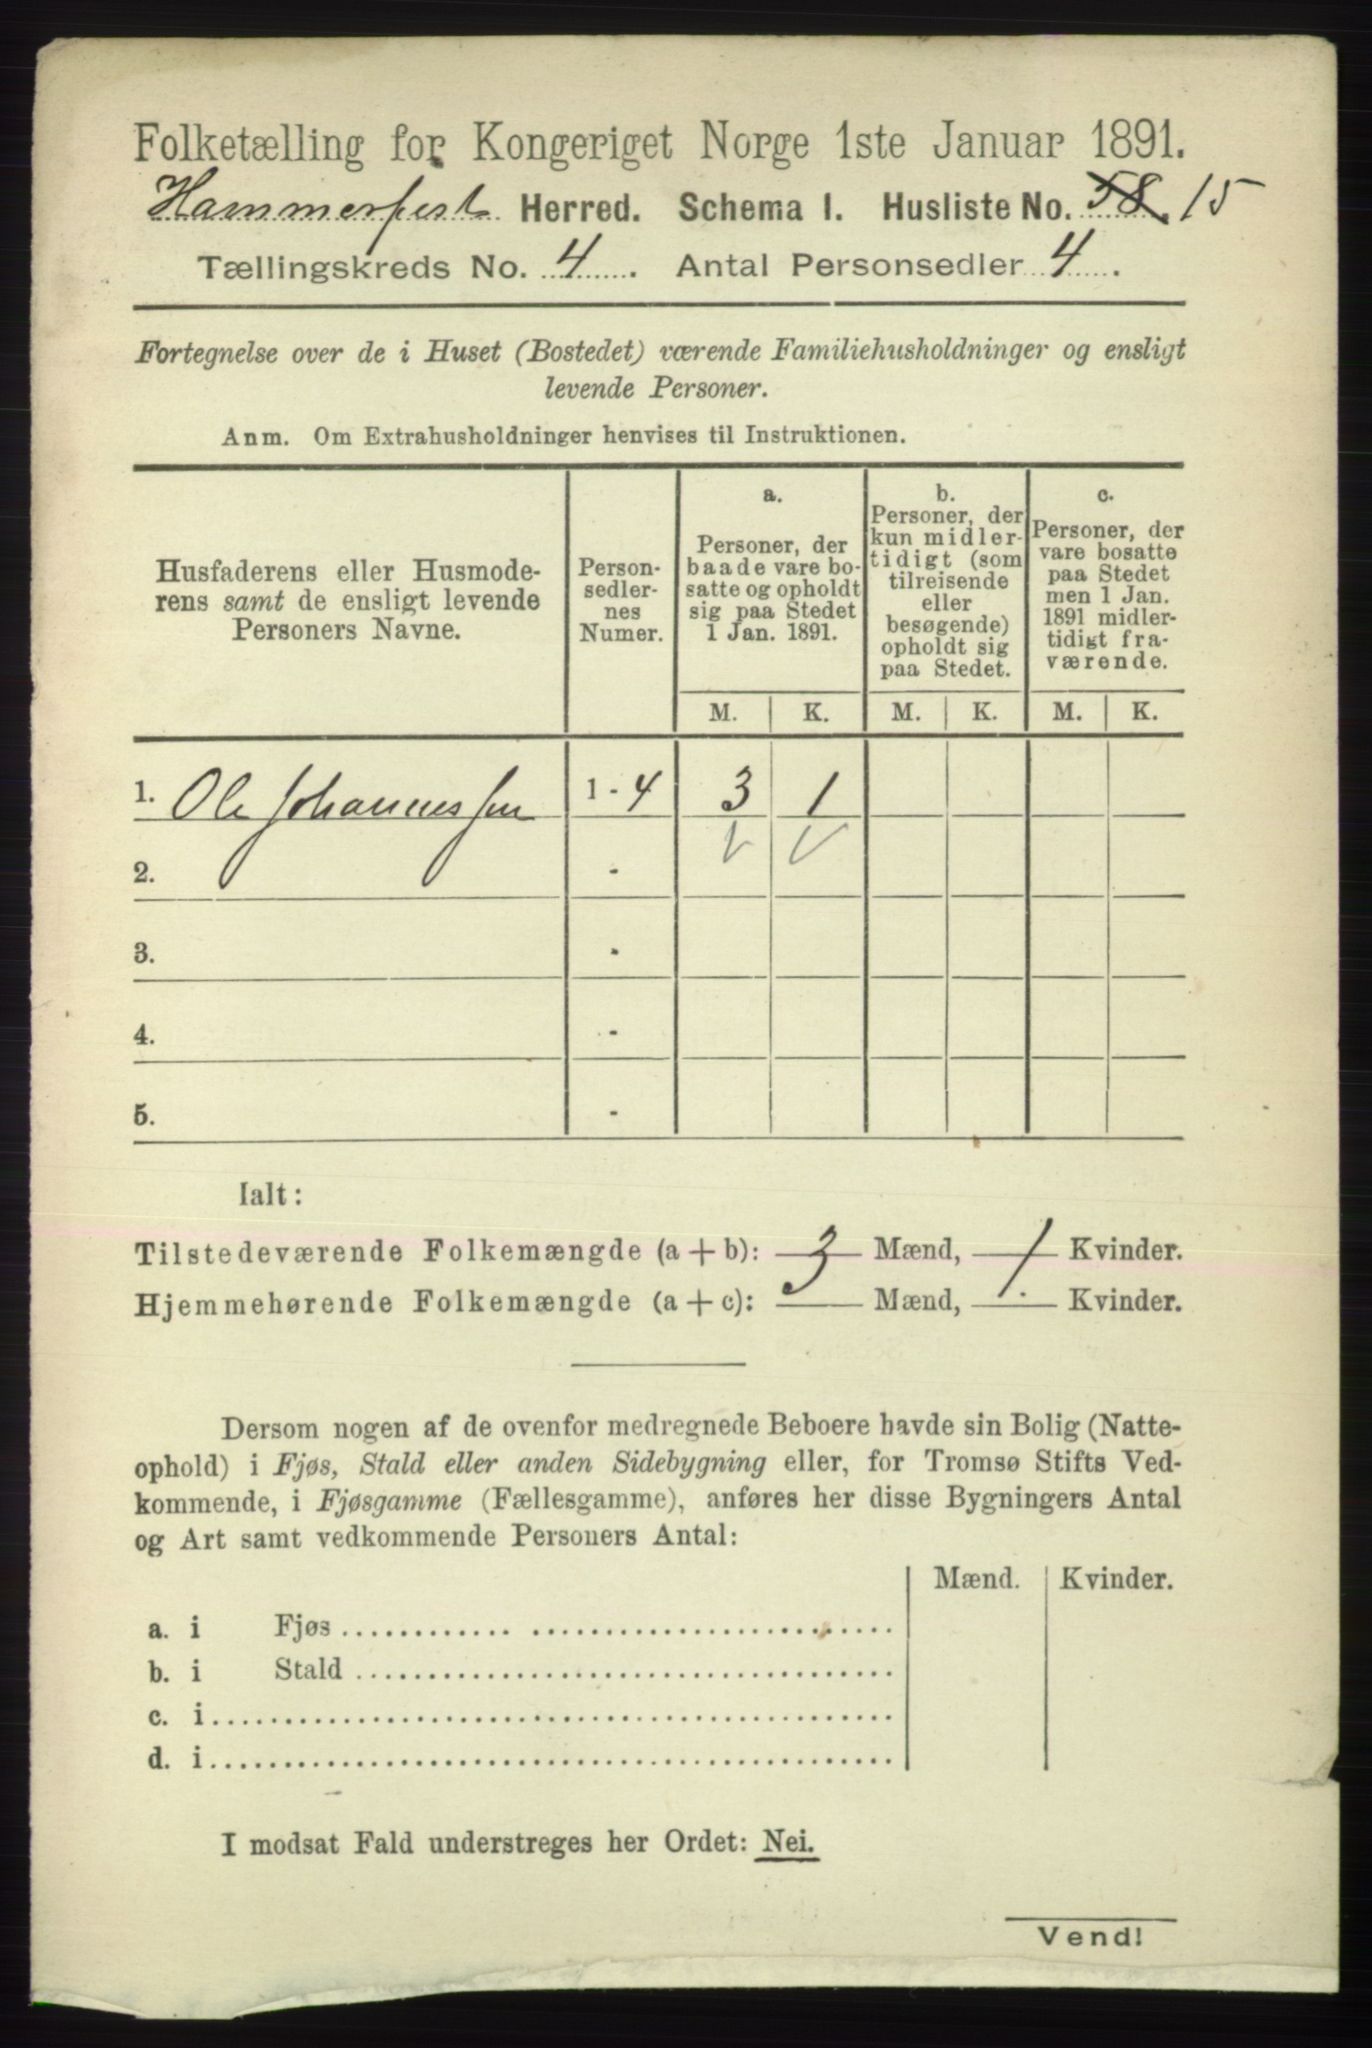 Folketælling for Kongeriget Norge 1ste Januar 1891.
Hammerfest Herred. Schema I. Husliste No. 58. 15
Tællingskreds No. 4. Antal Personsedler 4.
Fortegnelse over de i Huset (Bostedet) værende Familiehusholdninger og ensligt
levende Personer.
Anm. Om Extrahusholdninger henvises til Instruktionen.
Husfaderens eller Husmode-
rens samt de ensligt levende
Personers Navne.
Person-
sedler-
nes
Numer.
a.
Personer, der
baade vare bo-
satte og opholdt
sig paa Stedet
1 Jan. 1891.
b.
Personer, der
kun midler-
tidigt (som
tilreisende
eller
besøgende)
opholdt sig
paa Stedet.
c.
Personer, der
vare bosatte
paa Stedet
men 1 Jan.
1891 midler-
tidigt fra-
værende.
M. K. M. K. M. K.
1. Ole Johannessen 1 - 4 3 1
2. -
3. -
4. -
5. -
Ialt:
Tilstedeværende Folkemængde (a + b): 3 Mænd, 1 Kvinder.
Hjemmehørende Folkemængde (a + c): Mænd, Kvinder.
Dersom nogen af de ovenfor medregnede Beboere havde sin Bolig (Natte-
ophold) i Fjøs, Stald eller anden Sidebygning eller, for Tromsø Stifts Ved-
kommende, i Fjøsgamme (Fællesgamme), anføres her disse Bygningers Antal
og Art samt vedkommende Personers Antal:
Mænd. Kvinder.
a. i Fjøs
b. i Stald
c. i
d. i
I modsat Fald understreges her Ordet: Nei.
Vend!